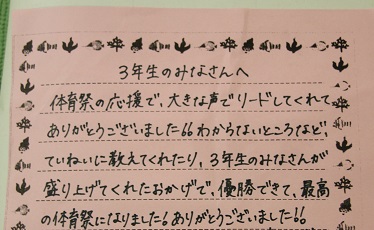 ３年生のみなさんへ
体育祭の応援で、大きな声でリードしてくれて
ありがとうございました!!わからないところなど、
ていねいに教えてくれたり、３年生のみなさんが
盛り上げてくれたおかげで、優勝できて、最高
の体育祭になりました!ありがとうございました!!